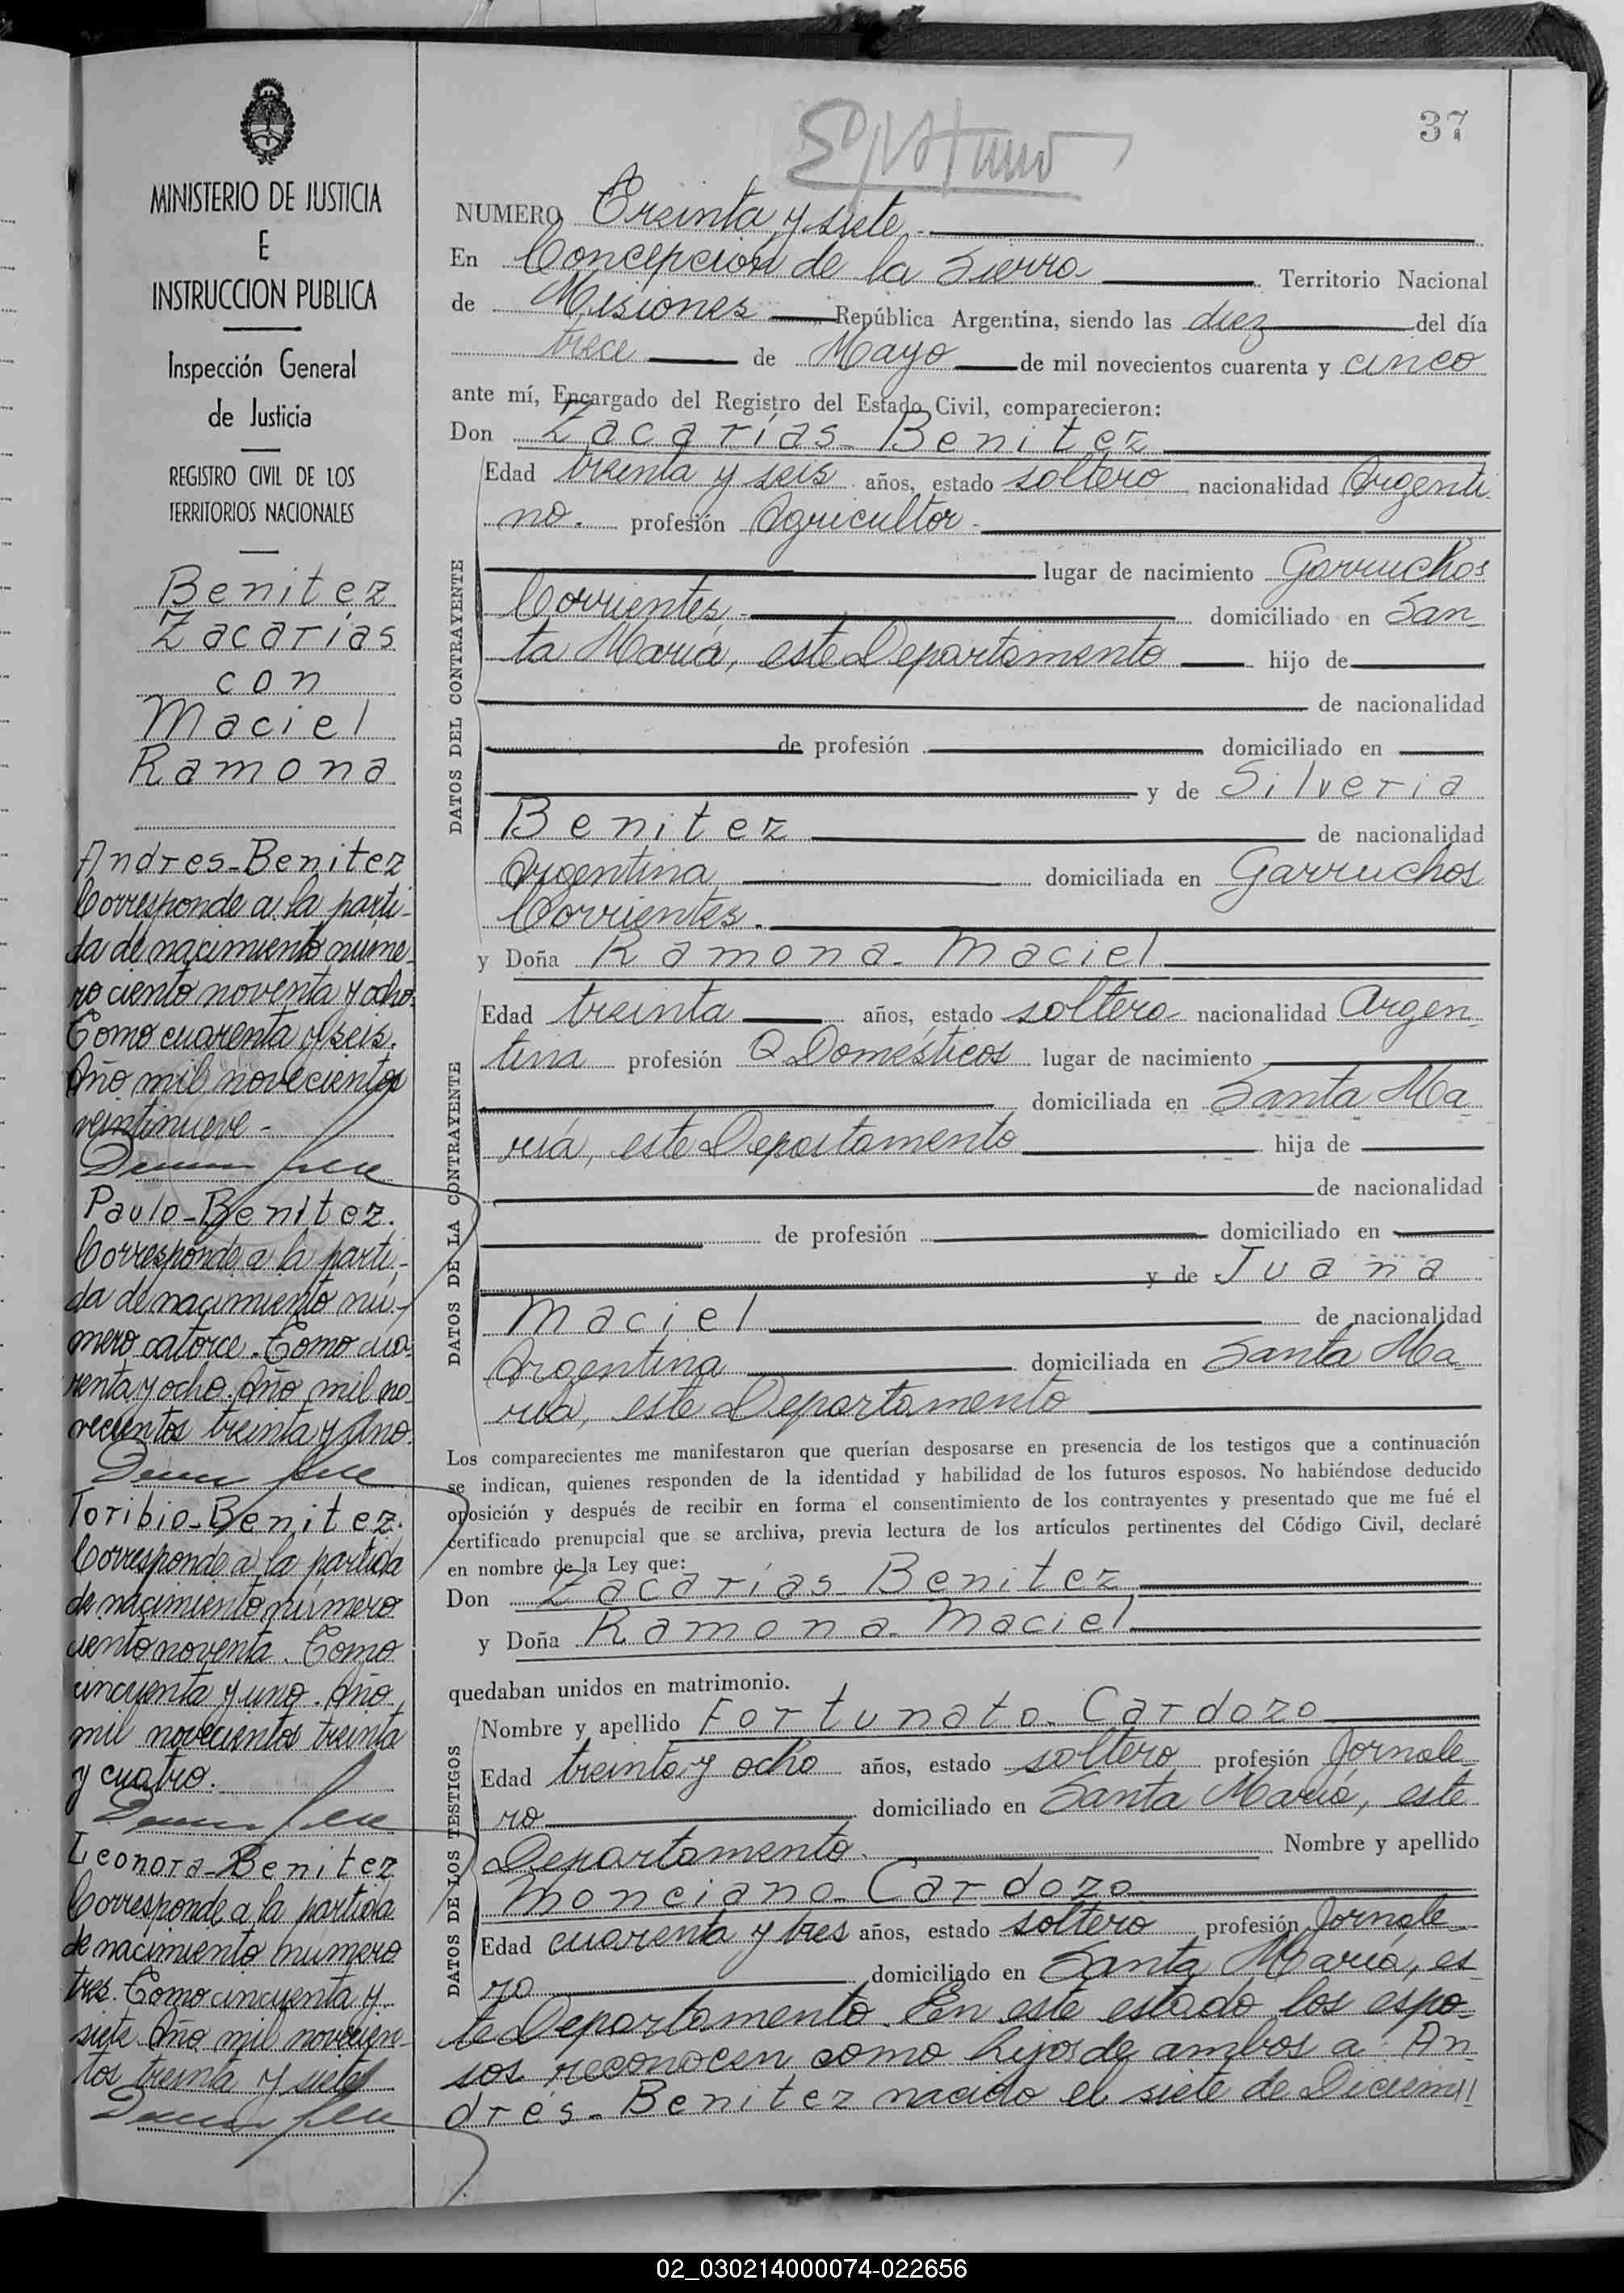 37
NUMERO Treinta y siete.
En Concepción de la Sierra Territorio Nacional
de Misiones República Argentina, siendo las diez del día
trece de Mayo de mil novecientos cuarenta y cinco
ante mí, Encargado del Registro del Estado Civil, comparecieron:
Don Zacarías Benitez
Edad treinta y seis años, estado soltero nacionalidad Argenti
no. profesión Agricultor.
lugar de nacimiento Garruchos
Corrientes, domiciliado en San_
ta María, este Departamento hijo de
de nacionalidad
de profesión domiciliado en
y de Silveria
Benitez de nacionalidad
Argentina domiciliada en Garruchos
Corrientes.
y Doña Ramona Maciel
DATOS DEL CONTRAYENTE
Edad treinta años, estado soltera nacionalidad Argen_
tina profesión Q. Domésticos lugar de nacimiento
domiciliada en Santa Ma_
ría, este Departamento hija de
de nacionalidad
de profesión domiciliado en
y de Juana
Maciel de nacionalidad
Argentina domiciliada en Santa Ma_
ria, este Departamento
DATOS DE LA CONTRAYENTE
Los comparecientes me manifestaron que querían desposarse en presencia de los testigos que a continuación
se indican, quienes responden de la identidad y habilidad de los futuros esposos. No habiéndose deducido
oposición y después de recibir en forma el consentimiento de los contrayentes y presentado que me fué el
certificado prenupcial que se archiva, previa lectura de los artículos pertinentes del Código Civil, declaré
en nombre de la Ley que:
Don Zacarías Benitez
y Doña Ramona Maciel
quedaban unidos en matrimonio.
Nombre y apellido Fortunato Cardozo
Edad treinta y ocho años, estado soltero profesión Jornale_
ro domiciliado en Santa María, este
Departamento. Nombre y apellido
Monciano Cardozo
Edad cuarenta y tres años, estado soltero profesión Jornale_
ro domiciliado en Santa María, es_
te Departamento. En este estado los espo_
sos reconocen como hijos de ambos a: An_
drés Benitez nacido el siete de Diciem//
DATOS DE LOS TESTIGOS
MINISTERIO DE JUSTICIA
E
INSTRUCCION PUBLICA
Inspección General
de Justicia
REGISTRO CIVIL DE LOS
TERRITORIOS NACIONALES
Benitez
Zacarías
con
Maciel
Ramona
Andres Benitez
Corresponde a la parti_
da de nacimiento núme_
ro ciento noventa y ocho.
Tomo cuarenta y seis.
Año mil novecientos
veintinueve.
Paulo Benitez.
Corresponde a la parti_
da de nacimiento nú_
mero catorce. Tomo cua_
renta y ocho. Año mil no_
vecientos treinta y uno.
Toribio Benitez.
Corresponde a la partida
de nacimiento número
ciento noventa. Tomo
cincuenta y uno. Año
mil novecientos treinta
y cuatro.
Leonora Benitez
Corresponde a la partida
de nacimiento número
tres. Tomo cincuenta y
siete. Año mil novecien_
tos treinta y siete
02_030214000074-022656